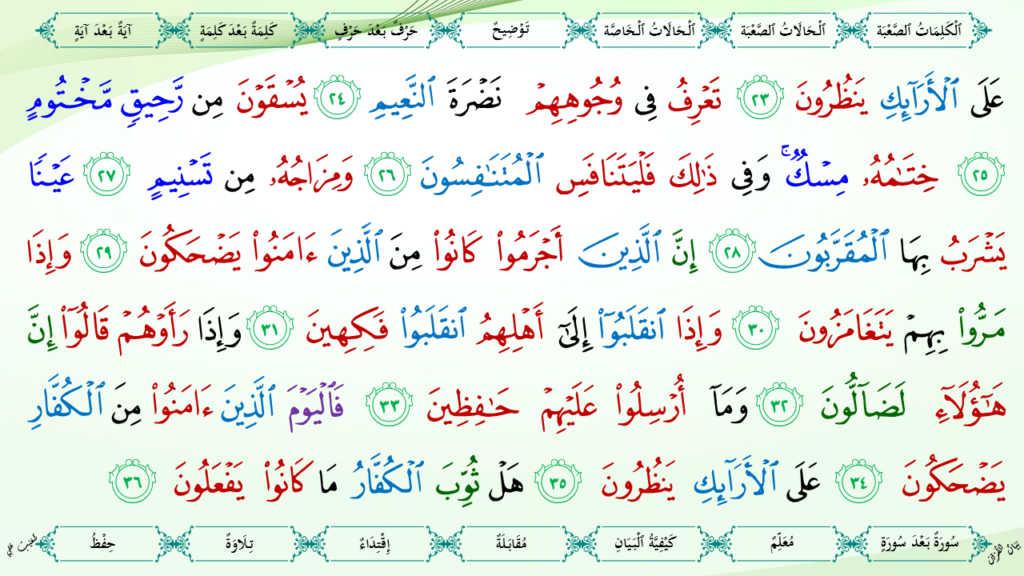 اَلْكَلِمَاتُ الصَّعْبَة اَلْحَالَاتُ الصَّعْبَة اَلْحَالَاتُ الْخَاصَّة تَوْضِيحٌ حَرْفٌ بَعْدَ حَرْفٍ كَلِمَةٌ بَعْدَ كَلِمَةٍ آيَةٌ بَعْدَ آيَةٍ
عَلَى ٱلْأَرَآئِكِ يَنظُرُونَ ٢٣ تَعْرِفُ فِى وُجُوهِهِمْ نَضْرَةَ ٱلنَّعِيمِ ٢٤ يُسْقَوْنَ مِن رَّحِيقٍ مَّخْتُومٍ
٢٥ خِتَـٰمُهُۥ مِسْكٌ ۚ وَفِى ذَٰلِكَ فَلْيَتَنَافَسِ ٱلْمُتَنَـٰفِسُونَ ٢٦ وَمِزَاجُهُۥ مِن تَسْنِيمٍ ٢٧ عَيْنًا
يَشْرَبُ بِهَا ٱلْمُقَرَّبُونَ ٢٨ إِنَّ ٱلَّذِينَ أَجْرَمُوا۟ كَانُوا۟ مِنَ ٱلَّذِينَ ءَامَنُوا۟ يَضْحَكُونَ ٢٩ وَإِذَا
مَرُّوا۟ بِهِمْ يَتَغَامَزُونَ ٣٠ وَإِذَا ٱنقَلَبُوٓا۟ إِلَىٰٓ أَهْلِهِمُ ٱنقَلَبُوا۟ فَكِهِينَ ٣١ وَإِذَا رَأَوْهُمْ قَالُوٓا۟ إِنَّ
هَـٰٓؤُلَآءِ لَضَآلُّونَ ٣٢ وَمَآ أُرْسِلُوا۟ عَلَيْهِمْ حَـٰفِظِينَ ٣٣ فَٱلْيَوْمَ ٱلَّذِينَ ءَامَنُوا۟ مِنَ ٱلْكُفَّارِ
يَضْحَكُونَ ٣٤ عَلَى ٱلْأَرَآئِكِ يَنظُرُونَ ٣٥ هَلْ ثُوِّبَ ٱلْكُفَّارُ مَا كَانُوا۟ يَفْعَلُونَ ٣٦
سُورَةٌ بَعْدَ سُورَةٍ مُعَلِّمٌ كَيْفِيَّةُ الْبَيَانِ مُقَابَلَةٌ إِقْتِدَاءٌ تِلَاوَةٌ حِفْظٌ